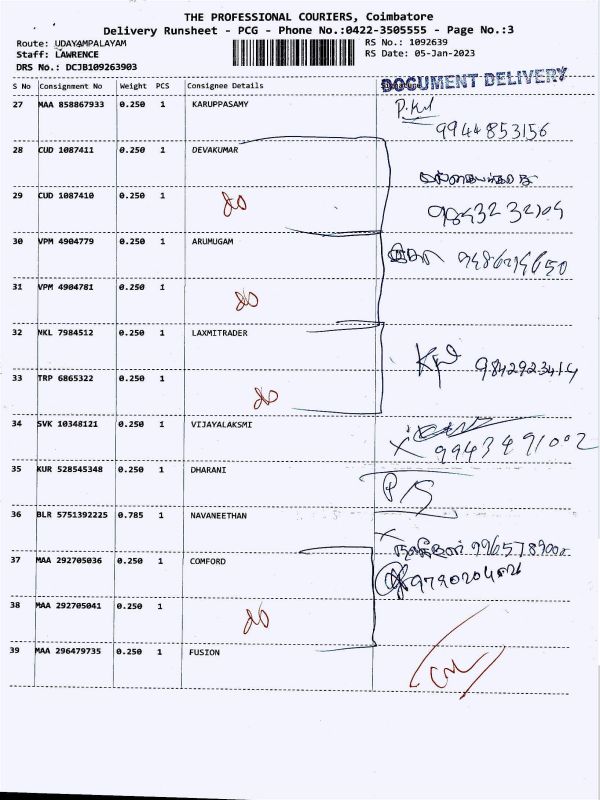 THE PROFESSIONAL COURIERS, Coimbatore
Delivery Runsheet - PCG - Phone No.:0422-3505555 - Page No.:3
Route: UDAYAMPALAYAM RS No.: 1092639
Staff: LAWRENCE RS Date: 05-Jan-2023
DRS No.: DCJB109263903
DOCUMENT DELIVERY
S No Consignment No Weight PCS Consignee Details
27 MAA 858867933 0.250 1 KARUPPASAMY
9944853156
28 CUD 1087411 0.250 1 DEVAKUMAR
29 CUD 1087410 0.250 1 do
30 VPM 4904779 0.250 1 ARUMUGAM
31 VPM 4904781 0.250 1 do
32 NKL 7984512 0.250 1 LAXMITRADER
9842923414
33 TRP 6865322 0.250 1 do
34 SVK 10348121 0.250 1 VIJAYALAKSMI
9943491002
35 KUR 528545348 0.250 1 DHARANI
36 BLR 5751392225 0.785 1 NAVANEETHAN
37 MAA 292705036 0.250 1 COMFORD
38 MAA 292705041 0.250 1 do
39 MAA 296479735 0.250 1 FUSION